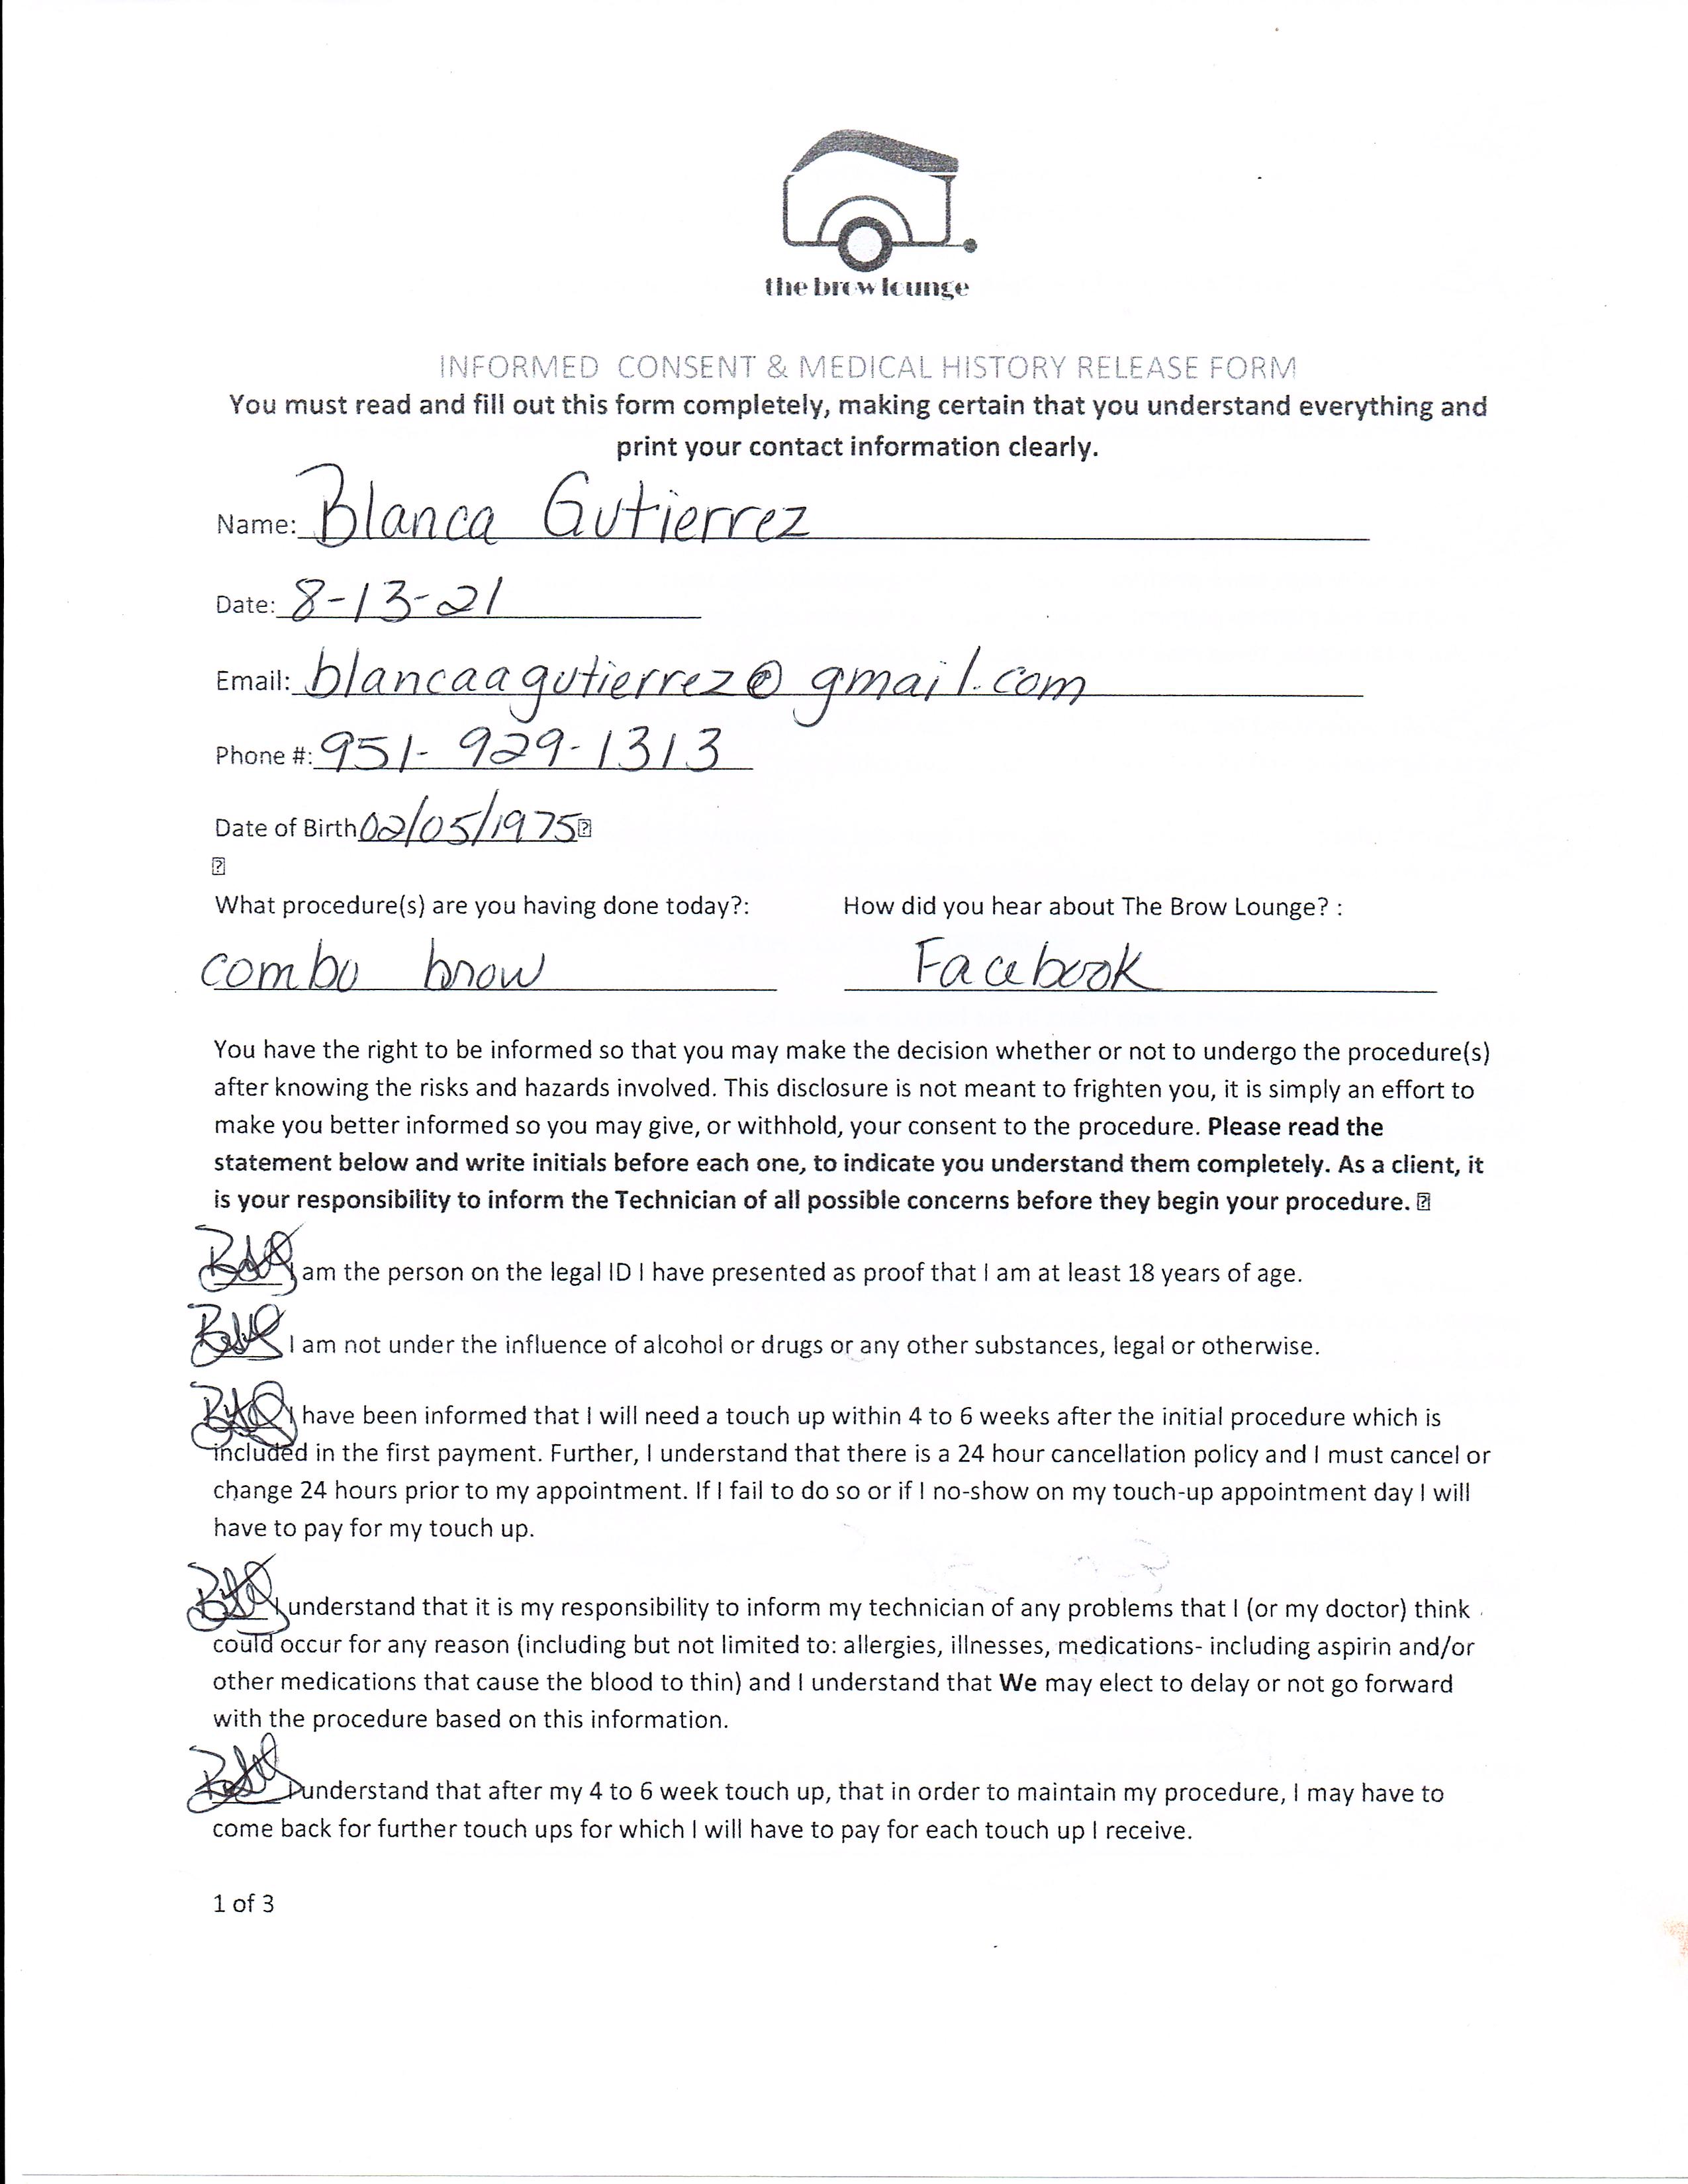 the brow lounge
INFORMED CONSENT & MEDICAL HISTORY RELEASE FORM
You must read and fill out this form completely, making certain that you understand everything and
print your contact information clearly.
Name: Blanca Gutierrez
Date: 8-13-21
Email: blancaagutierrez@gmail.com
Phone #: 951-929-1313
Date of Birth 02/05/1975
What procedure(s) are you having done today?: How did you hear about The Brow Lounge? :
combo brow Facebook
You have the right to be informed so that you may make the decision whether or not to undergo the procedure(s)
after knowing the risks and hazards involved. This disclosure is not meant to frighten you, it is simply an effort to
make you better informed so you may give, or withhold, your consent to the procedure. Please read the
statement below and write initials before each one, to indicate you understand them completely. As a client, it
is your responsibility to inform the Technician of all possible concerns before they begin your procedure.
I am the person on the legal ID I have presented as proof that I am at least 18 years of age.
I am not under the influence of alcohol or drugs or any other substances, legal or otherwise.
I have been informed that I will need a touch up within 4 to 6 weeks after the initial procedure which is
included in the first payment. Further, I understand that there is a 24 hour cancellation policy and I must cancel or
change 24 hours prior to my appointment. If I fail to do so or if I no-show on my touch-up appointment day I will
have to pay for my touch up.
I understand that it is my responsibility to inform my technician of any problems that I (or my doctor) think
could occur for any reason (including but not limited to: allergies, illnesses, medications- including aspirin and/or
other medications that cause the blood to thin) and I understand that We may elect to delay or not go forward
with the procedure based on this information.
I understand that after my 4 to 6 week touch up, that in order to maintain my procedure, I may have to
come back for further touch ups for which I will have to pay for each touch up I receive.
1 of 3